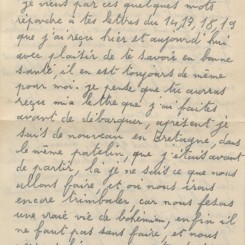 je viens par ces quelques mots
répondre à tes lettres du 14, 17, 18, 19
que j'ai reçu hier et aujourd'hui
avec plaisir de te savoir en bonne
santé, il en est toujours de même
pour moi. je pense que tu auras
reçu ma lettre que j'ai faite
avant de débarquer, apresent je
suis de nouveau en Bretagne, dans
le même patelin, que j'étais avant
de partir, la je ne sait ce que nous
allons faire, et ou nous irons
encore trimbaler car nous fesons
une vraie vie de bohemien, enfin il
ne faut pas sans faire, et nous